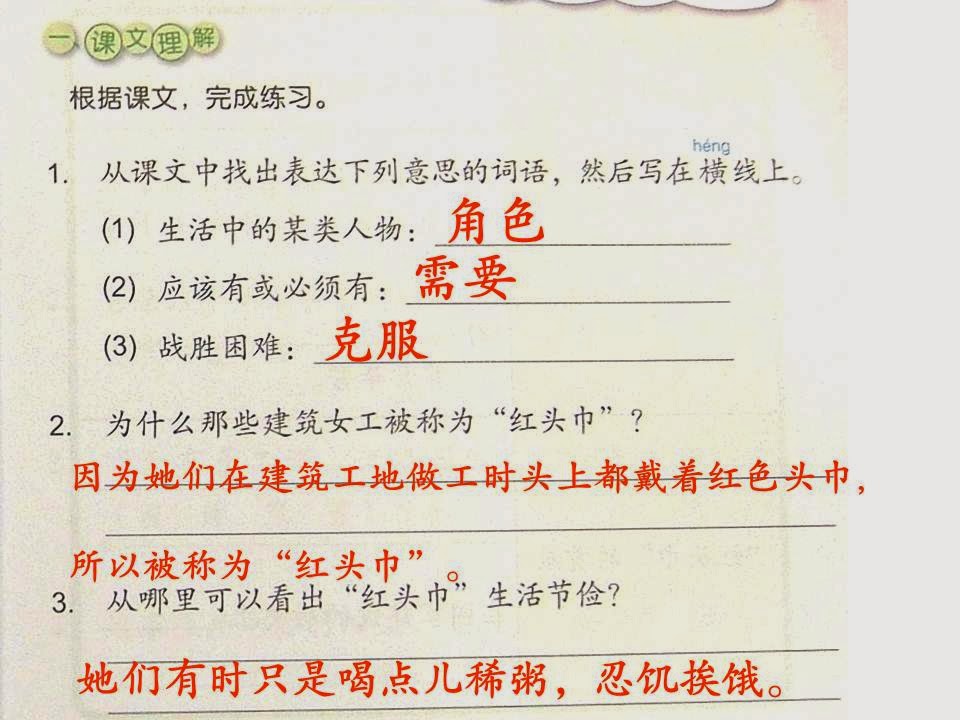 一、课文理解
根据课文，完成练习。
héng
1. 从课文中找出表达下列意思的词语，然后写在横线上。
(1) 生活中的某类人物：角色
(2) 应该有或必须有：需要
(3) 战胜困难：克服
2. 为什么那些建筑女工被称为“红头巾”？
因为她们在建筑工地做工时头上都戴着红色头巾，
所以被称为“红头巾”。
3. 从哪里可以看出“红头巾”生活节俭？
她们有时只是喝点儿稀粥，忍饥挨饿。